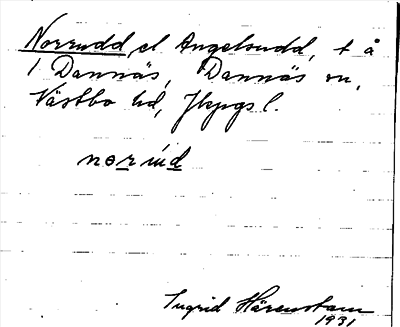 Norrudd el Angelsudd, t å
1 Dannäs, Dannäs sn,
Västbo hd, Jkpgs l.
norùd
Ingrid Härenstam
1931